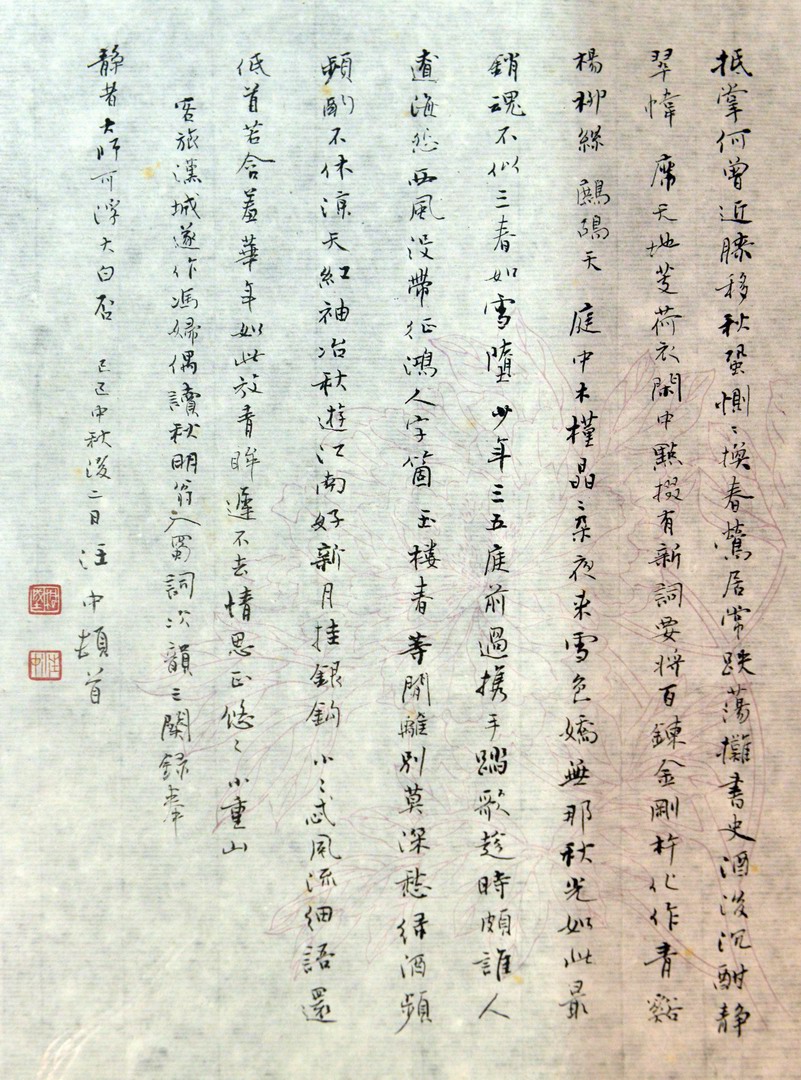 抵掌何曾近膝移秋蛩惻〻換春鶯居常跌蕩攤書史酒後沉酣静
翠幃 席天地芰荷衣閑中點掇有新詞要將百鍊金剛杵化作青谿
楊柳絲 鷓鴣天 庭中木槿晶〻朵夜来雪色嬌無那秋光如此最
銷魂不似三春如雪墮 少年三五庭前過攜手踏歌趁時頗誰人
遼海怨西風没帶征鴻人字箇 玉樓春 等閒離別莫深愁緑酒頻
頻酌不休涼天紅袖冶秋遊江南好新月挂銀鈎 小〻忒風流細語還
低首若含羞華年如此放青眸遲不去情思正悠〻 小重山
客旅漢城遂作馮婦偶讀秋明翁入蜀詞次韻三闋録奉
静者大師可浮大白否 己巳中秋後二日 汪中頓首